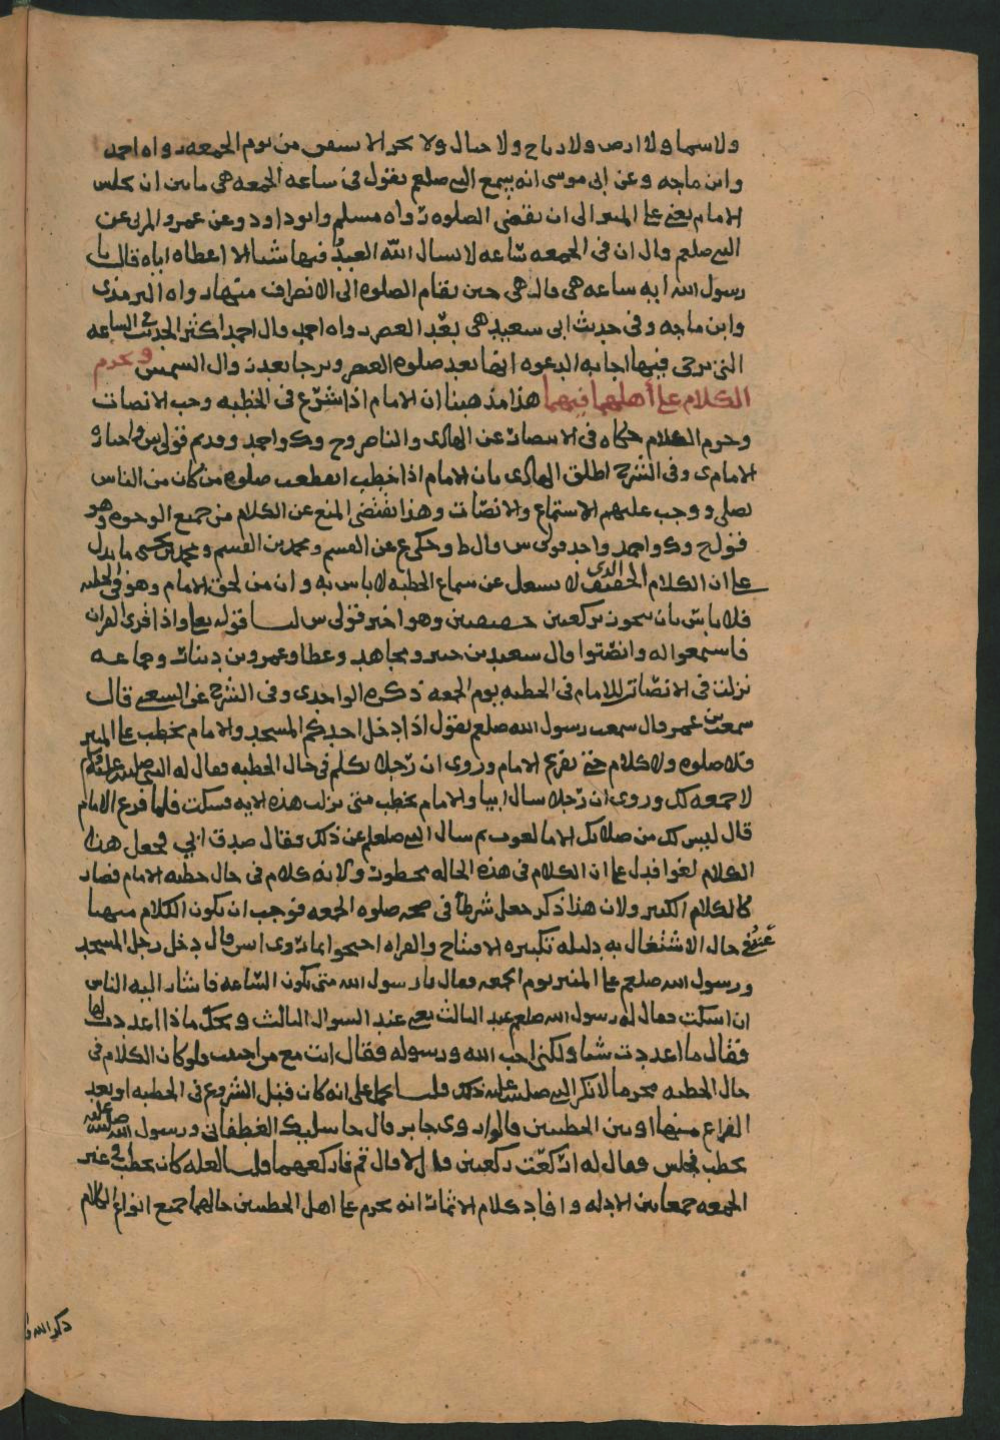 ولا سما ولا ارض ولا رياح ولا جبال ولا بحر الا يشفقن من يوم الجمعه رواه احمد
وابن ماجه وعن ابى موسى انه سمع النبي صلعم يقول فى ساعه الجمعه هى ما بين ان يجلس
الامام يعنى على المنبر الى ان يقضى الصلوه رواه مسلم وابو داود وعن عمرو المزنى عن
النبي صلعم قال ان فى الجمعه ساعه لا يسال الله العبد فيها شيا الا اعطاه اياه قالوا يا
رسول الله ايه ساعه هى قال هى حين تقام الصلوه الى الانصراف منها رواه الترمذى
وابن ماجه وفى حديث ابى سعيد هى بعد العصر رواه احمد وقال احمد اكثر الحديث فى الساعه
التى ترجى فيها اجابه الدعوه انها بعد صلوه العصر وترجا بعد زوال الشمس ويحرم
الكلام على اهلهما فيهما هذا مذهبنا ان الامام اذا شرع فى الخطبه وجب الانصات
وحرم الكلام حكاه فى الانتصار عن الهادى والناصر وح وك واحمد وقديم قولى ش واختاره
الامام ى وفى الشرح اطلق الهادى بان الامام اذا خطب انقطعت صلوه من كان من الناس
يصلى ووجب عليهم الاستماع والانصات وهذا يقتضى المنع عن الكلام من جميع الوجوه وهو
قول ح وك واحمد واحد قولى ش وقال ط وحكى ع عن القسم ومحمد بن القسم ومحمد بن يحيى ما يدل
على ان الكلام الخفيف الذى لا يشغل عن سماع الخطبه لا باس به وان من لحق الامام وهو فى الخطبه
فلا باس بان يجوز بركعتين خفيفتين وهو اخير قولى ش لنا قوله تعا واذا قرى القران
فاستمعوا له وانصتوا قال سعيد بن جبير ومجاهد وعطا وعمرو بن دينار وجماعه
نزلت فى الانصات للامام فى الخطبه يوم الجمعه ذكره الواحدى وفى الشرح عن الشعبى قال
سمعت بن عمر قال سمعت رسول الله صلعم يقول اذا دخل احدكم المسجد والامام يخطب على المنبر
فلا صلوه ولا كلام حتى يفرغ الامام وروى ان رجلا تكلم فى حال الخطبه فقال له النبي صلى الله عليه وسلم
لا جمعه لك وروى ان رجلا سال ابيا والامام يخطب متى نزلت هذه الايه فسكت فلما فرغ الامام
قال ليس لك من صلاتك الا ما لغوت ثم سال النبي صلعم عن ذلك فقال صدق ابي فجعل هذا
الكلام لغوا فدل على ان الكلام فى هذه الحاله محظور ولانه كلام فى حال خطبه الامام فصار
كالكلام الكثير ولان هذا ذكر جعل شرطا فى صحه صلوه الجمعه فوجب ان يكون الكلام منهيا
عنه فى حال الاشتغال به دليله تكبيره الافتتاح والقراه احتجوا بما روى انس قال دخل رجل المسجد
ورسول الله صلعم على المنبر يوم الجمعه فقال يا رسول الله متى تكون الساعه فاشار اليه الناس
ان اسكت فقال له رسول الله صلعم عند الثالث يعنى عند السوال الثالث ويحك ماذا اعددت لها
فقال ما اعددت شيا ولكنى احب الله ورسوله فقال انت مع من احببت فلو كان الكلام فى
حال الخطبه محرما لانكر النبي صلى الله عليه ذلك قلنا يحمل على انه كان قبل الشروع فى الخطبه او بعد
الفراغ منها او بين الخطبتين قالوا روى جابر قال جا سليك الغطفانى ورسول الله صلى الله عليه
يخطب فجلس فقال له اركعت ركعتين قال لا قال قم فاركعهما قلنا لعله كان يخطب فى غير
الجمعه جمعا بين الادله وافاد كلام الاثمار انه يحرم على اهل الخطبتين حالهما جميع انواع الكلام
ذكر الله